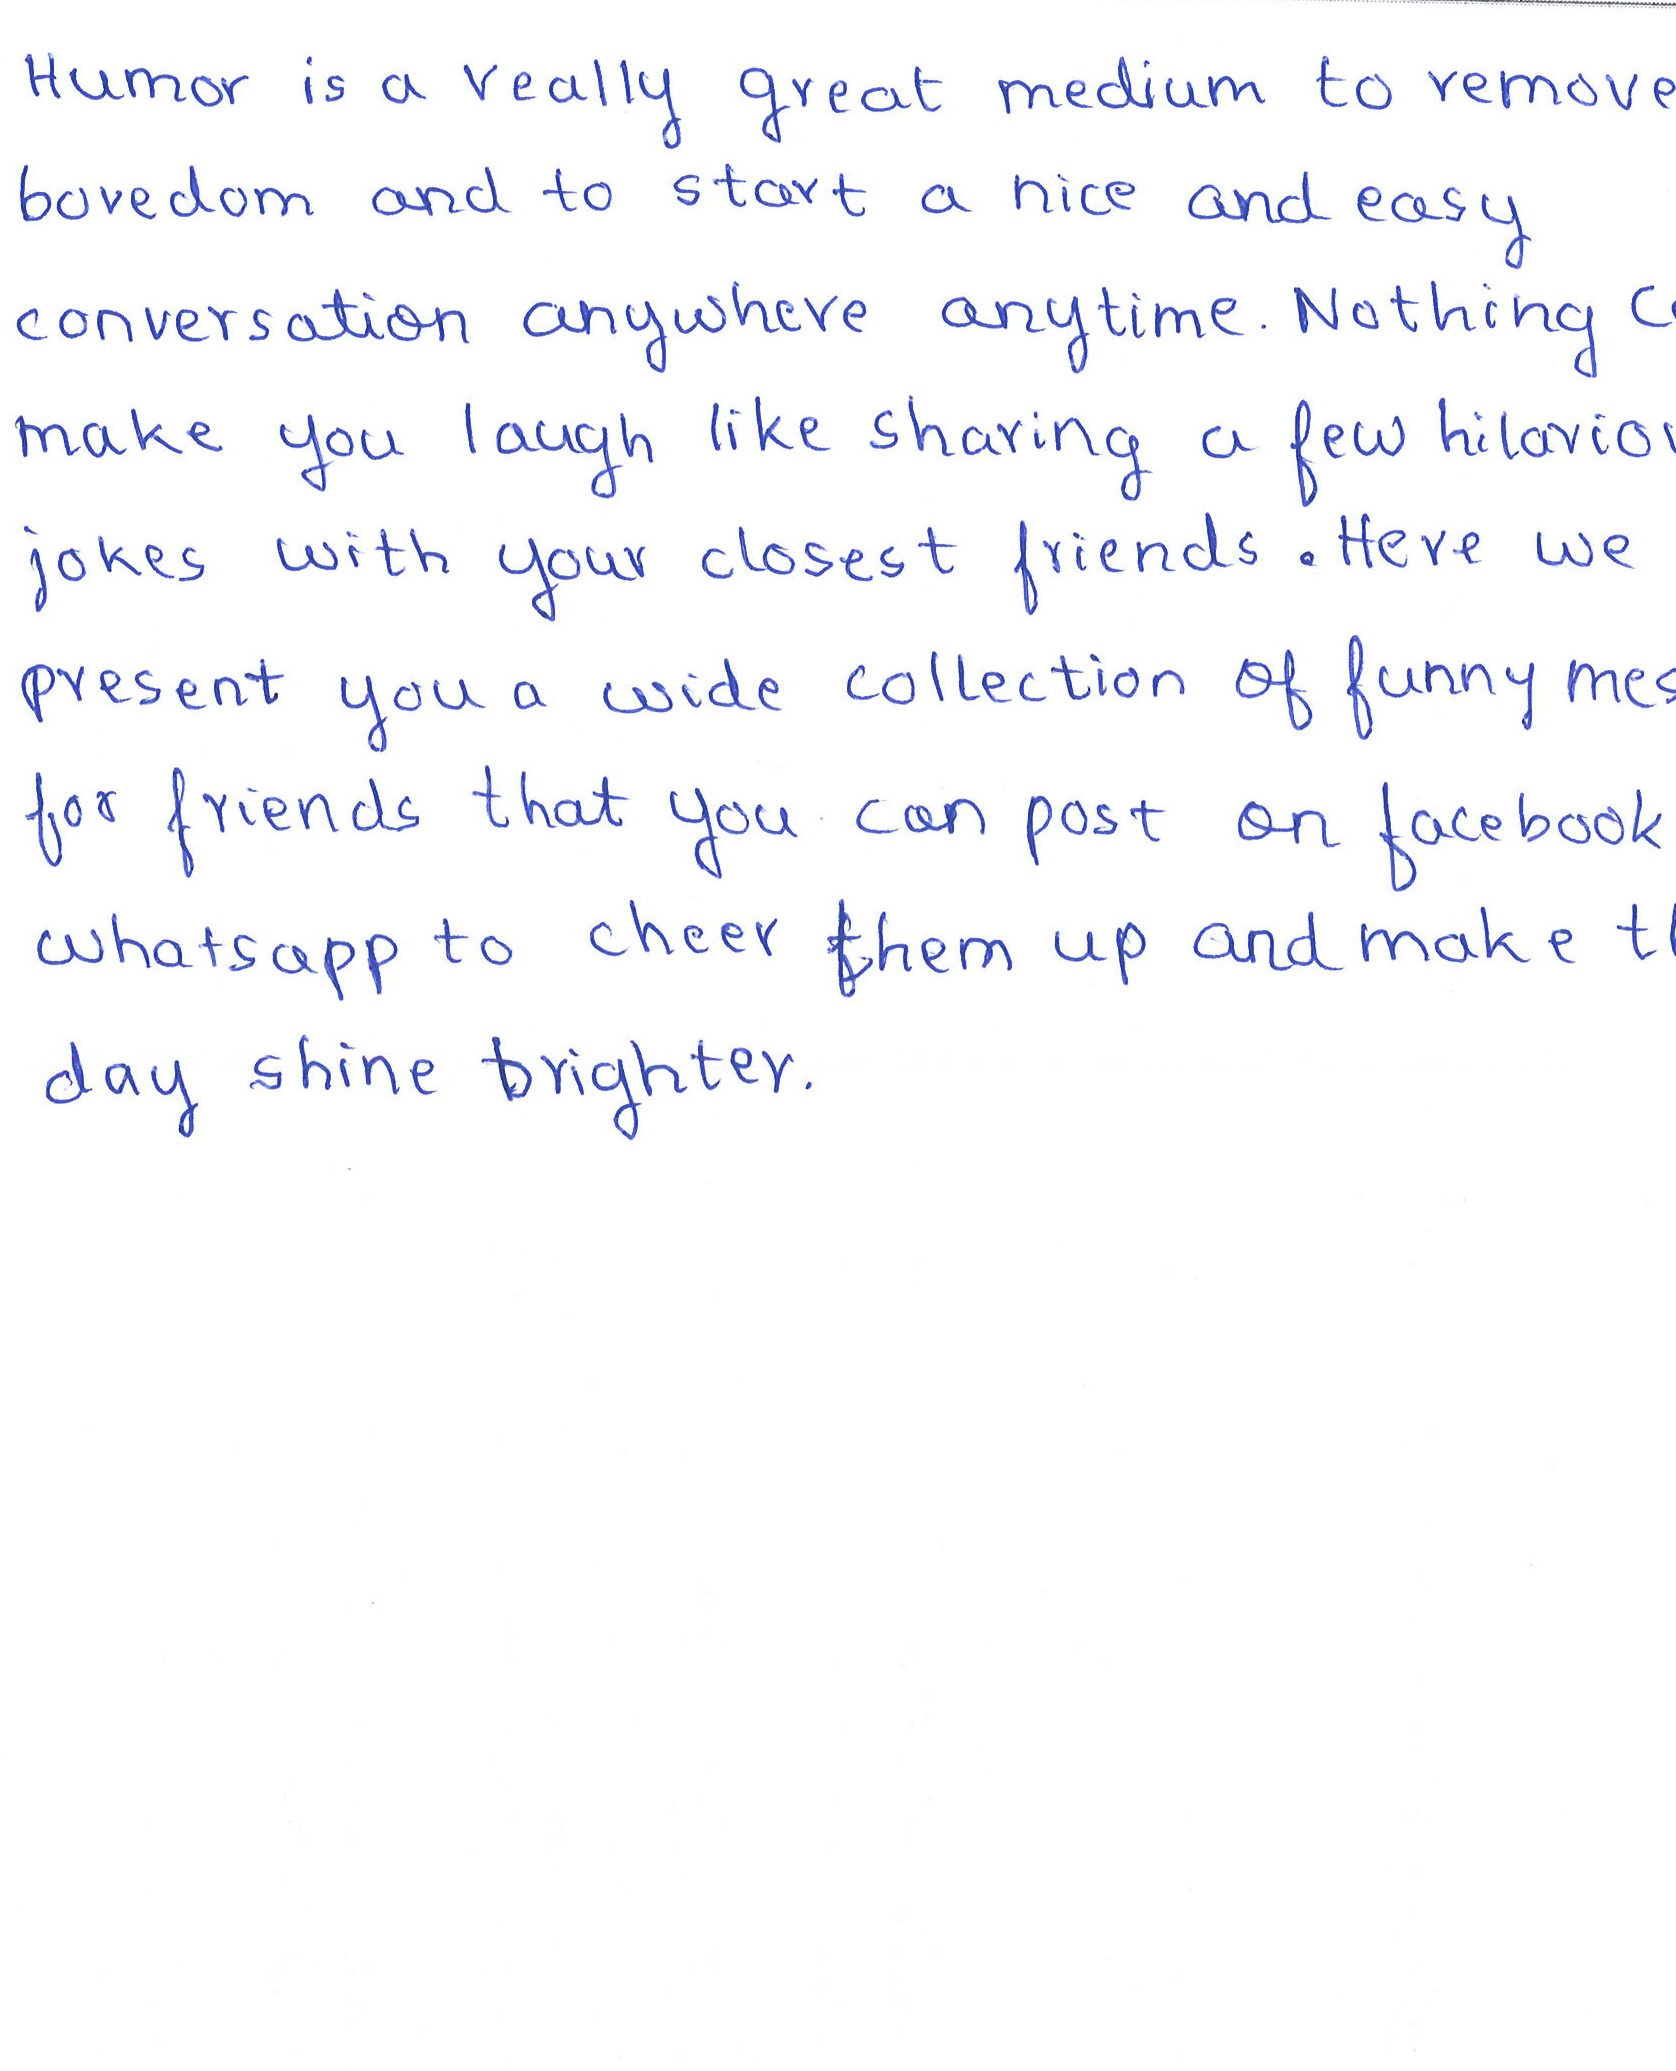 Humor is a really great medium to remove
boredom and to start a nice and easy
conversation anywhere anytime. Nothing
make you laugh like sharing a few
jokes with your closest friends. Here we
present you a wide collection of funny
for friends that you can post on facebook
whatsapp to cheer them up and make
day shine brighter.